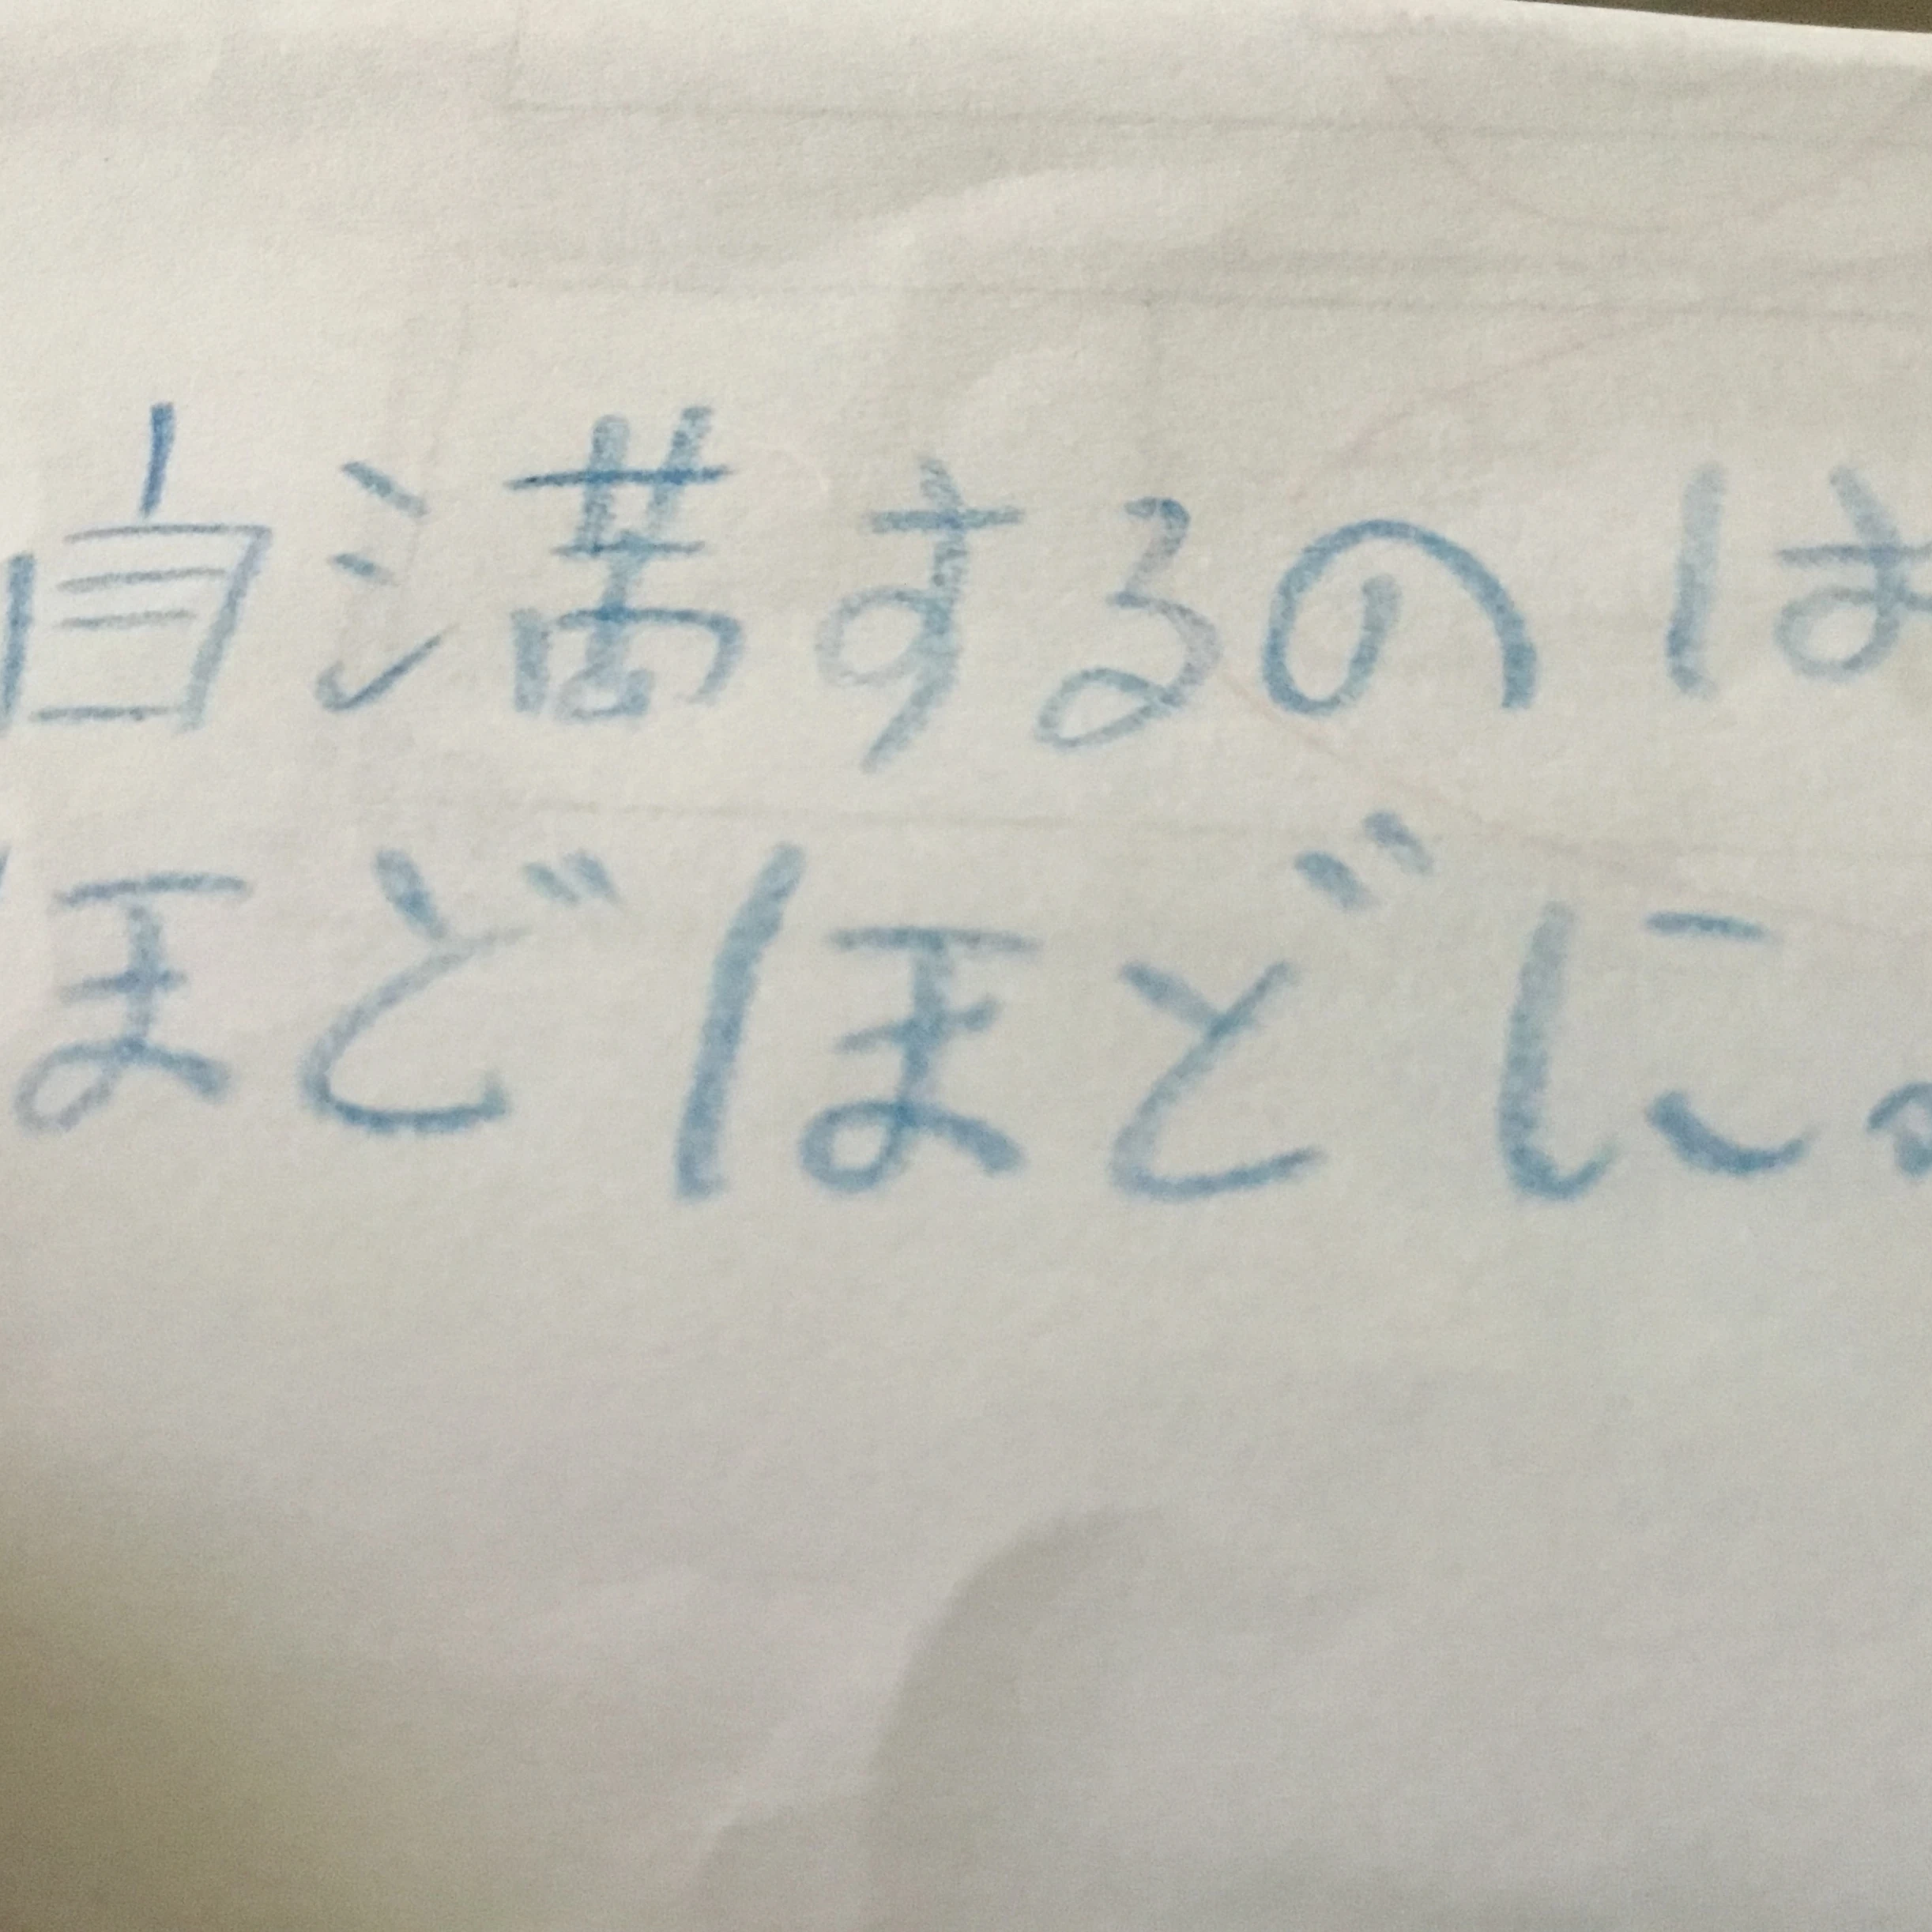 自満するのは
ほどほどに。